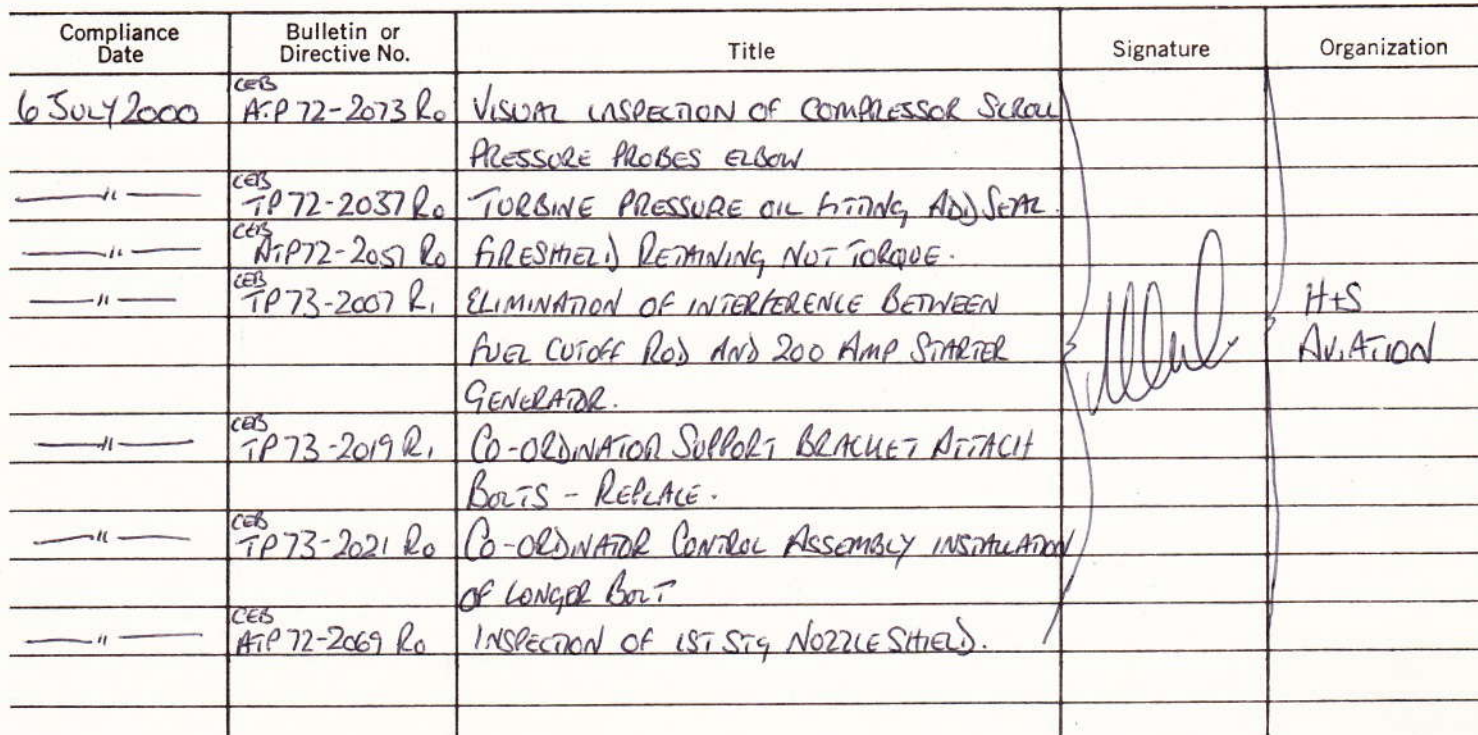 Compliance Date Bulletin or Directive No. Title Signature Organization
6 JULY 2000 CEB A-P 72-2073 R0 VISUAL INSPECTION OF COMPRESSOR SCROLL
PRESSURE PROBES ELBOW
—"— CEB TP 72-2037 R0 TURBINE PRESSURE OIL FITTING, ADD SEAL.
—"— CEB A-P 72-2057 R0 FIRESHIELD RETAINING NUT TORQUE.
—"— CEB TP 73-2007 R1 ELIMINATION OF INTERFERENCE BETWEEN H+S
FUEL CUTOFF ROD AND 200 AMP STARTER AVIATION
GENERATOR.
—"— CEB TP 73-2019 R1 CO-ORDINATOR SUPPORT BRACKET ATTACH
BOLTS - REPLACE.
—"— CEB TP 73-2021 R0 CO-ORDINATOR CONTROL ASSEMBLY INSTALLATION
OF LONGER BOLT
—"— CEB A-P 72-2069 R0 INSPECTION OF 1ST STG NOZZLE SHIELD.